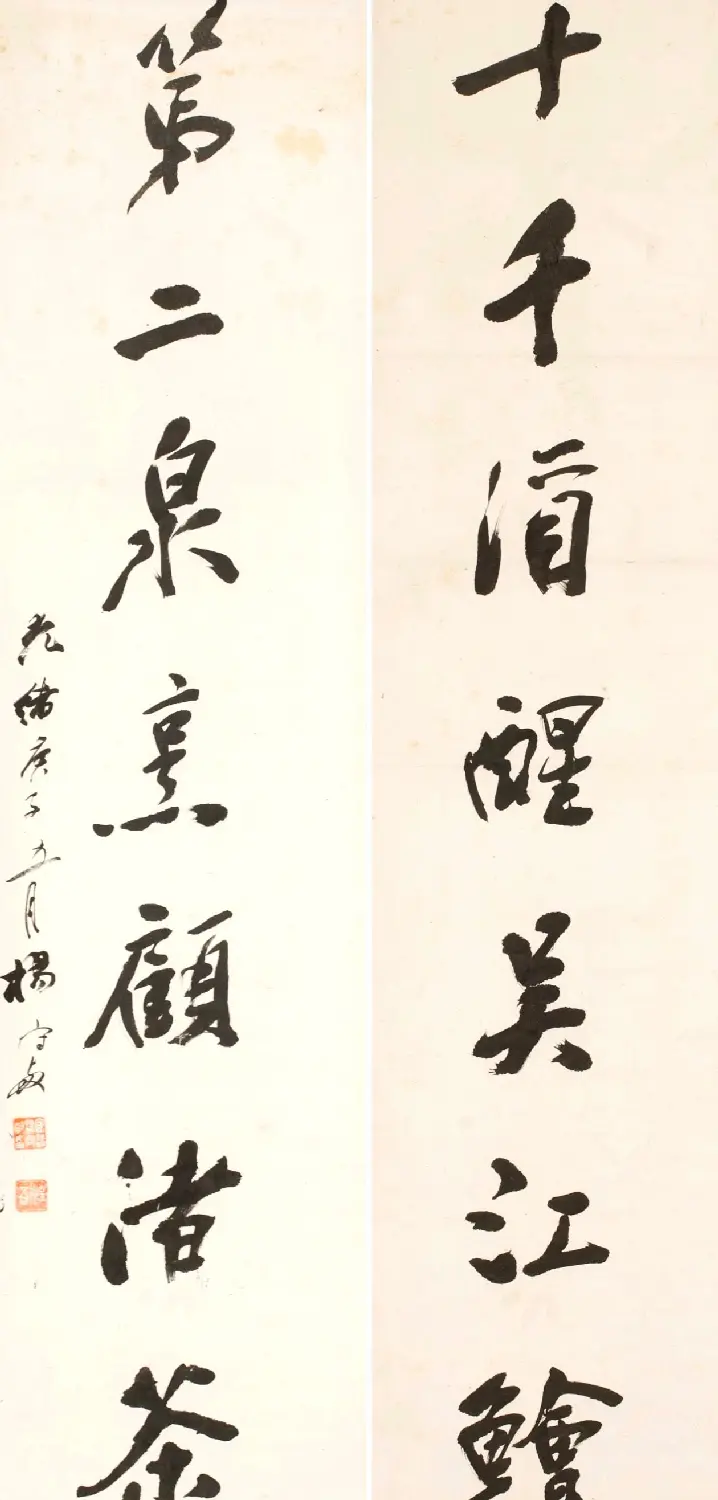 十千酒醒吳江鱠
第二泉烹顧渚茶
光緒庚子五月楊守敬